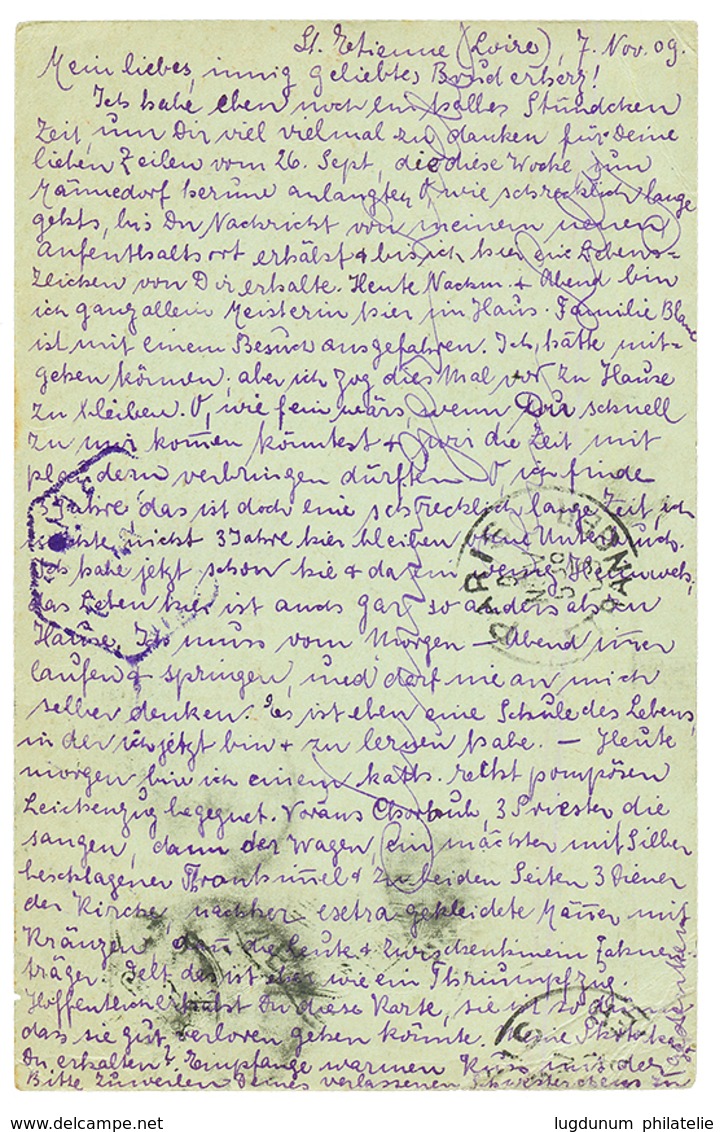 St. Etienne (Loire), 7. Nov. 09.
Mein liebes, innig geliebtes Bruderherz!
Ich habe eben noch ein halbes Stündchen
Zeit, um Dir viel vielmal zu danken für Deine
lieben Zeilen vom 26. Sept, die diese Woche zum
Männedorf herum anlangten. O, wie schrecklich lange
gehts, bis Du Nachricht von meinem neuen
Aufenthaltsort erhälst + bis ich hier ein Lebens=
zeichen von Dir erhalte. Heute Nachm. + Abend bin
ich ganz allein Meisterin hier im Haus. Familie Blanc
ist mit einem Besuch ausgefahren. Ich hätte mit=
gehen können, aber ich zog dies Mal vor zu Hause
zu bleiben. O, wie fein wärs, wenn Du schnell
zu mir kommen könntest + wir die Zeit mit
plaudern verbringen dürften. O ich finde
3 Jahre das ist doch eine schrecklich lange Zeit, ich
möchte nicht 3 Jahre hier bleiben ohne Unterbruch.
Ich habe jetzt schon hie + da ein wenig Heimweh,
das Leben hier ist auch gar so anders als zu
Hause. Ich muss vom Morgen - Abend immer
laufen + springen, und darf nie an mich
selber denken. Es ist eben eine Schule des Lebens,
in der ich jetzt bin + zu lernen habe. — Heute
morgen bin ich einem kath. recht pompösen
Leichenzug begegnet. Voraus Chorbub, 3 Priester die
sangen, dann der Wagen, ein mit Silber
beschlagener + zu beiden Seiten 3 Diener
der Kirche, nachher extra gekleidete Männer mit
Kränzen, dann die Leute + zwischenhinein Fahnen=
träger. Gelt das ist eher wie ein Thriumpfzug.
Hoffentlich erhälst Du diese Karte, sie ist so dünn
dass sie gut verloren gehen könnte.
Du erhalten? Empfange warmen Kuss mit der
Bitte zuweilen Deines verlassenen Schwesterchens zu
gedenken
PARIS
lugdunum philatelie